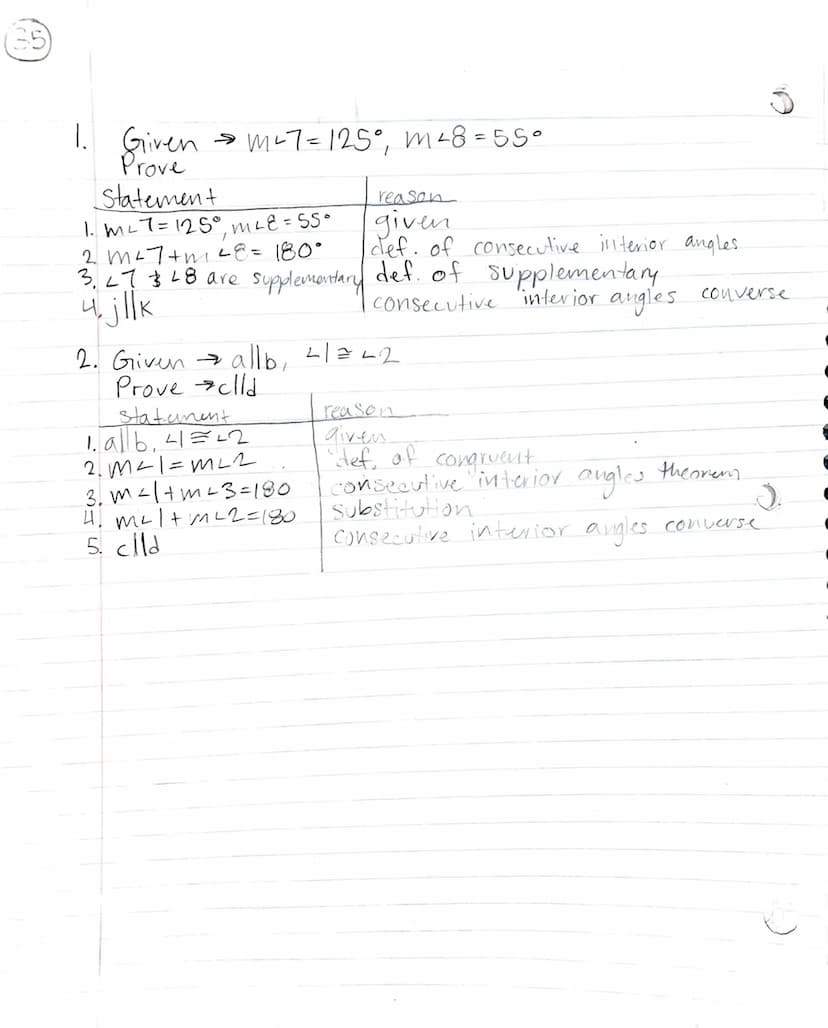 35
1. Given → m∠7=125°, m∠8=55°
Prove
Statement reason
1. m∠7=125°, m∠8=55° given
2 m∠7+m∠8=180° def. of consecutive interior angles
3. ∠7 & ∠8 are supplementary def. of supplementary
4. j||k consecutive interior angles converse
2. Given → a||b, ∠1≅∠2
Prove → c||d
Statement reason
1. a||b, ∠1≅∠2 given
2. m∠1=m∠2 def. of congruent
3. m∠1+m∠3=180 consecutive interior angles theorem
4. m∠1+m∠2=180 substitution
5. c||d consecutive interior angles converse